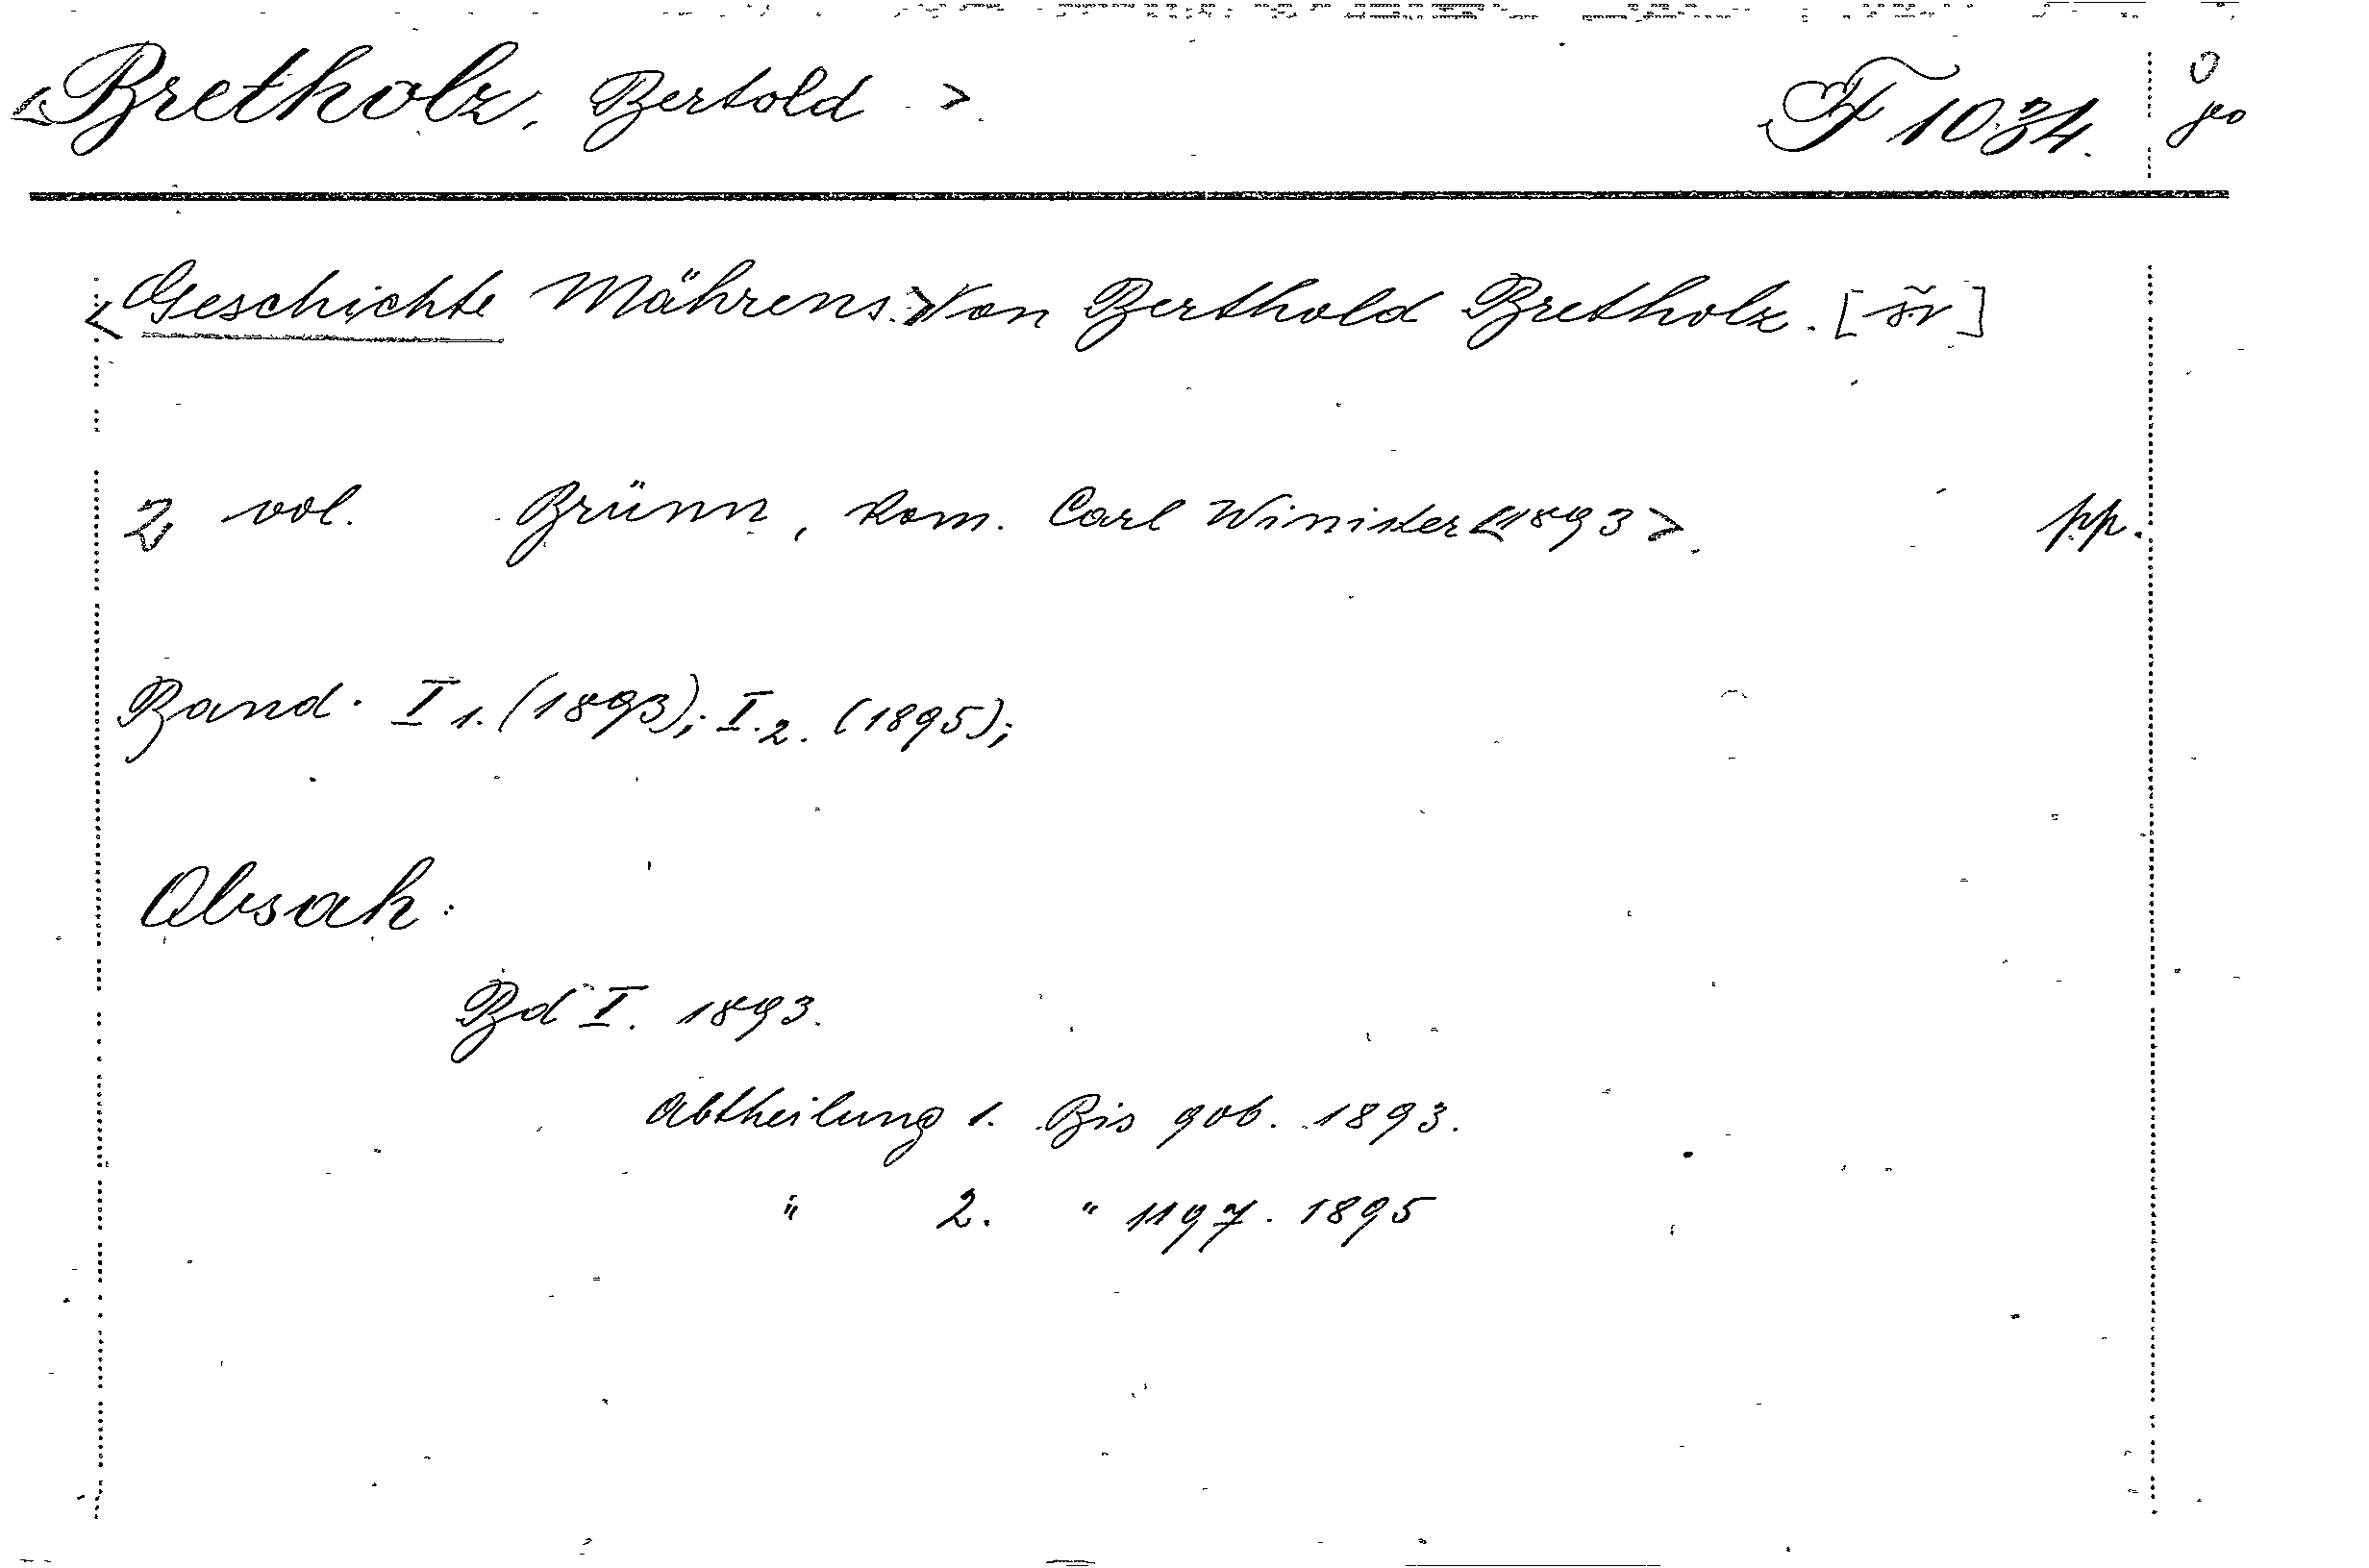 <Bretholz, Bertold > F 1034.
<Geschichte Mährens.> Von Berthold Bretholz. [šv]
2 vol. Brünn, kom. Carl Winiker <1893>. pp.
Band. I 1. (1893); I. 2. (1895);
Obsah:
Bd I. 1893.
Abtheilung 1. Bis 906. 1893.
" 2. " 1197. 1895